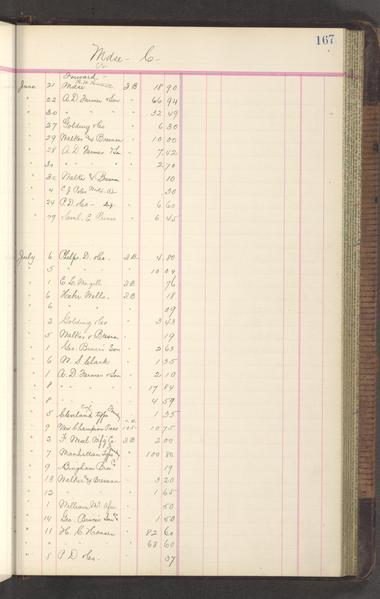 167
Mdse - C -
Forward -
June 21 Mdse 2B 18 90
" 22 A.D. Farmer & Son " 66 94
" 30 " " " 32 49
" 27 Golding & Co " 6 30
" 29 Walker & Bresnan " 10 00
" 28 A.D. Farmer & Son " 7 42
" 30 " " " 2 70
" 30 Walker & Bresnan " 10
" 4 " 30
" 24 P.D. & Co - " 6 60
" 29 E. " 6 45
July 6 Phelps. D. & Co. 2B 4 80
" 5 " " " 10 04
" 1 E.L. 2B 76
" 6 Heber Wells 2B 18
" 6 " " 09
" 2 Golding & Co " 3 43
" 5 Walker & Bresnan " 19
" 1 Geo. Bruce's Son " 2 63
" 6 W.S. Clark " 1 35
" 1 A.D. Farmer & Son " 2 10
" 8 " " " 17 84
" 8 " " " 4 59
" 5 Cleveland Type " 1 35
" 9 New Champion Press 105 10 75
" 2 F. Wesel Mfg Co 2B 2 00
" 7 Manhattan Type " 100 80
" 9 Bingham Bros " 19
" 13 Walker & Bresnan " 3 20
" 12 " " 1 65
" 1 William M. " 50
" 14 Geo. Bruce's Son " 1 50
" 11 H.C. Hansen " 82 60
" " " " 68 60
" 8 P.D. & Co. - " 37